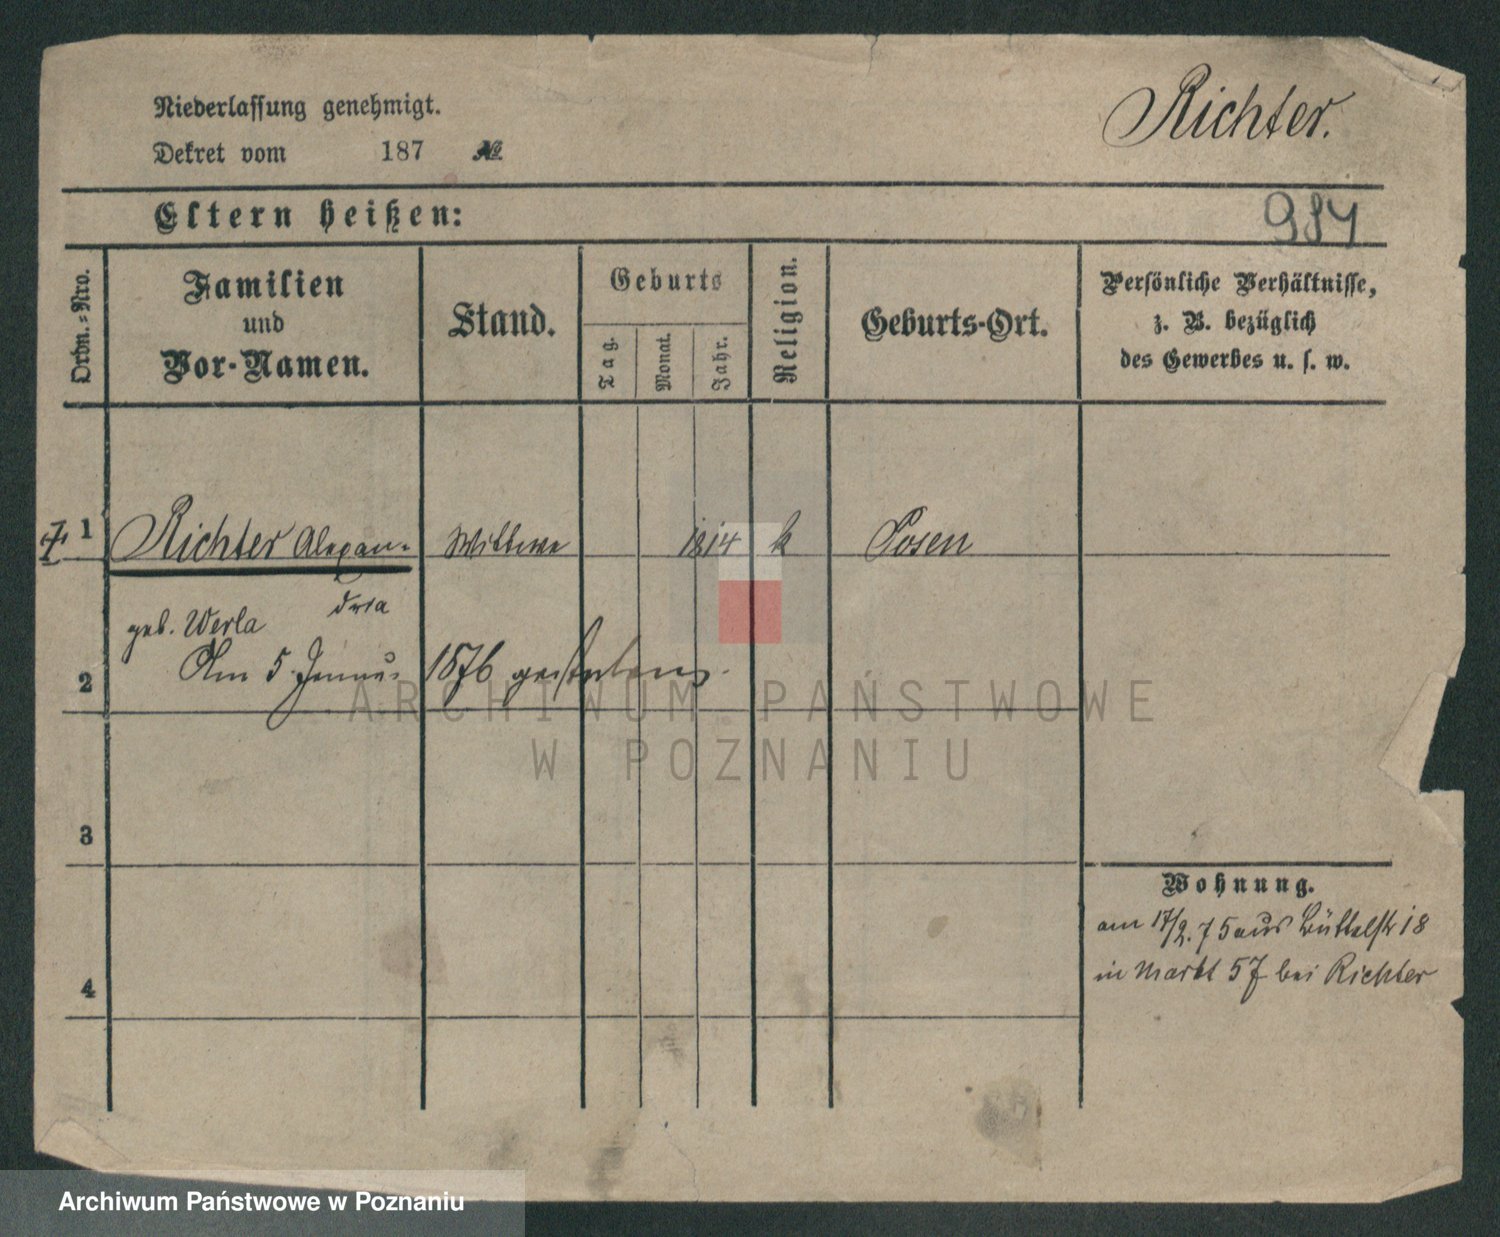 Niederlassung genehmigt.
Dekret vom 187 №
Richter.
Eltern heißen:
984
Ordn.-Nro.
Familien
und
Vor-Namen.
Stand.
Geburts
Tag.
Monat.
Jahr.
Religion.
Geburts-Ort.
Persönliche Verhältnisse,
z. B. bezüglich
des Gewerbes u. s. w.
† 1 Richter Alexan- Wittwe 1814 k Posen
dria
geb. Werla
2 Am 5 Januar 1876 gestorben.
ARCHIWUM PAŃSTWOWE
W POZNANIU
3
Wohnung.
am 17/2. 75 aus Büttelstr 18
4 in Markt 57 bei Richter
Archiwum Państwowe w Poznaniu